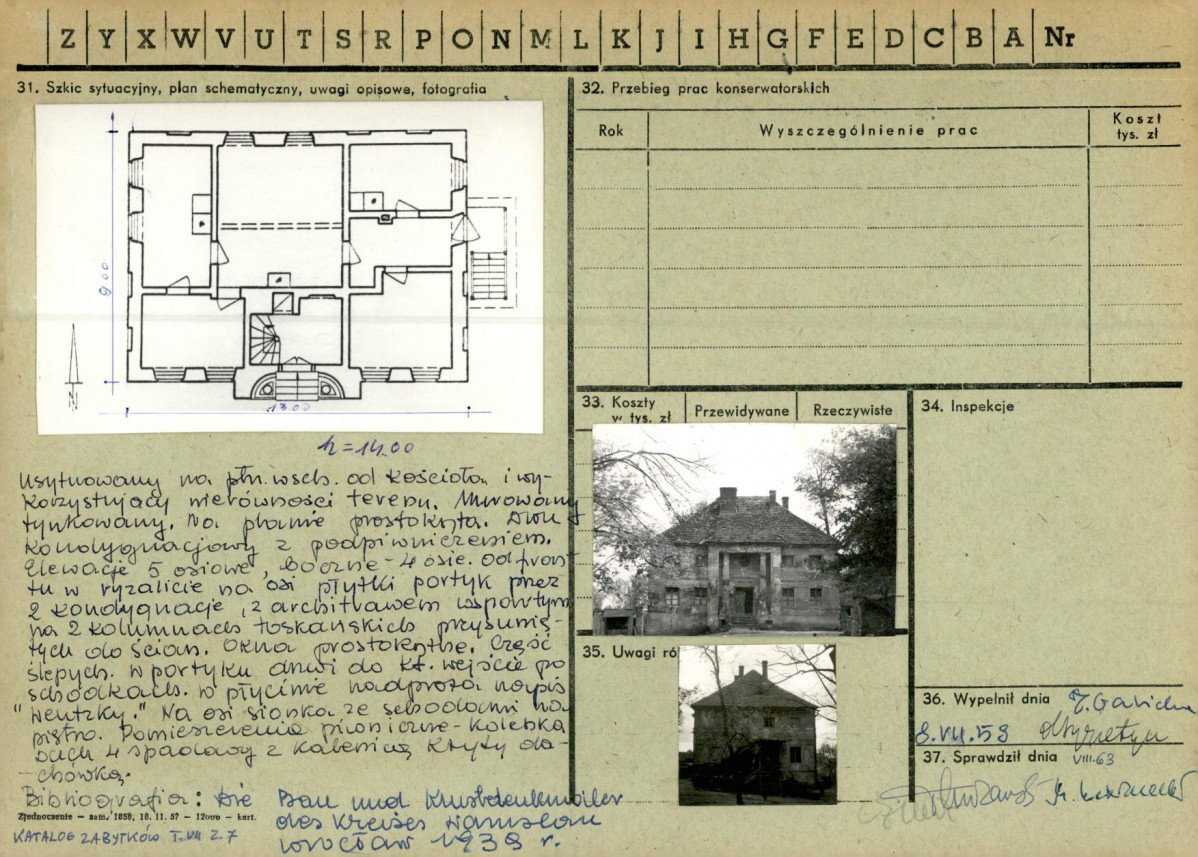 Z Y X W V U T S R P O N M L K J I H G F E D C B A Nr
31. Szkic sytuacyjny, plan schematyczny, uwagi opisowe, fotografia
9.00
N
13.00
h = 14.00
Usytuowany na płn. wsch. od kościoła i wy-
korzystujący nierówności terenu. Murowany
tynkowany. Na planie prostokąta. Dwu
kondygnacjowy z podpiwniczeniem.
Elewacje 5 osiowe, boczne - 4 osie. Od fron-
tu w ryzalicie na osi płytki portyk przez
2 kondygnacje, z architrawem wspartym
na 2 kolumnach toskańskich przysunię-
tych do ścian. Okna prostokątne. Część
ślepych. W portyku drzwi do kt. wejście po
schodkach. W płycinie nadproża napis
"Wentzky." Na osi sionka ze schodami na
piętro. Pomieszczenia piwniczne - kolebka
Dach 4 spadowy z kalenicą kryty da-
-chówką.
Bibliografia: Die Bau und Kunstdenkmäler
des Kreises Namslau
Wrocław 1939 r.
Zjednoczenie — zam. 1858, 18. 11. 57 — 12000 — kart.
KATALOG ZABYTKÓW T. VII Z. 7
32. Przebieg prac konserwatorskich
Rok Wyszczególnienie prac Koszt tys. zł
33. Koszty w tys. zł Przewidywane Rzeczywiste
34. Inspekcje
35. Uwagi
36. Wypełnił dnia
8.VII.59
37. Sprawdził dnia VIII.63